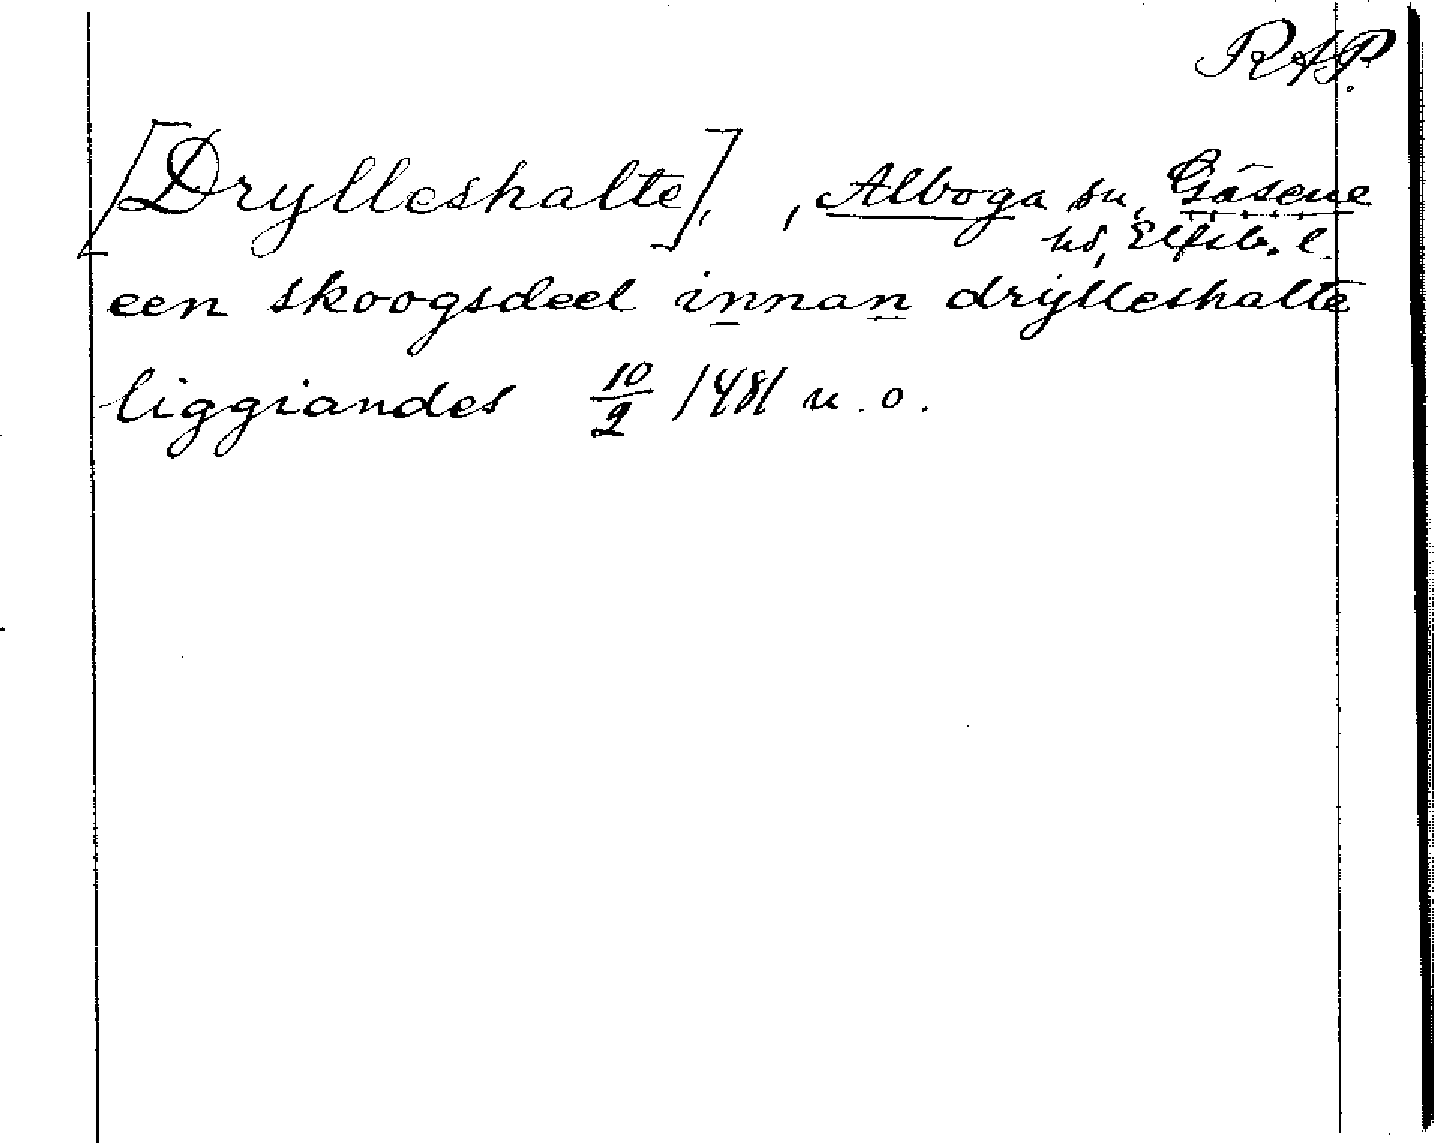 RAP.
[Drylleshalte], , Alboga sn, Gäsene
hd, Elfsb. l.
een skoogsdeel innan drylleshalte
liggiandes 10/2 1481 u.o.